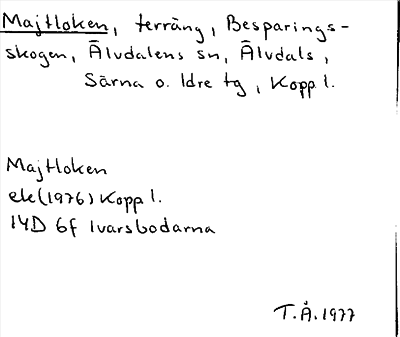 Majtloken, terräng, Besparings-
skogen, Älvdalens sn, Älvdals,
Särna o. Idre tg, Kopp l.
Majtloken
ek (1976) Kopp l.
14D 6f Ivarsbodarna
T.Å. 1977